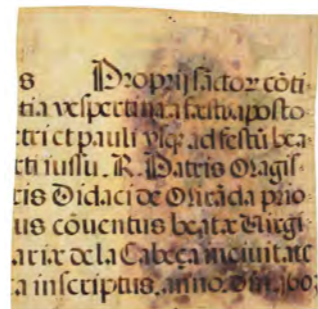 s Proprij sāctoꝝ cōti
tia vespertina a festū aposto
etri et pauli vsq; ad festū bea
cti iussu. R. Patris Magis
ris Didaci de Mirāda prio
us cōuentus beatæ Virgi
ariæ de la Cabeça in ciuitate
a inscriptus, anno. Dñi. 160